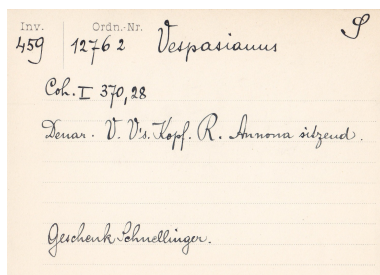 Inv. Ordn.-Nr. S
459 12762 Vespasianus
Coh. I 370,28
Denar. V. V's. Kopf. R. Annona sitzend.
Geschenk Schnellinger.